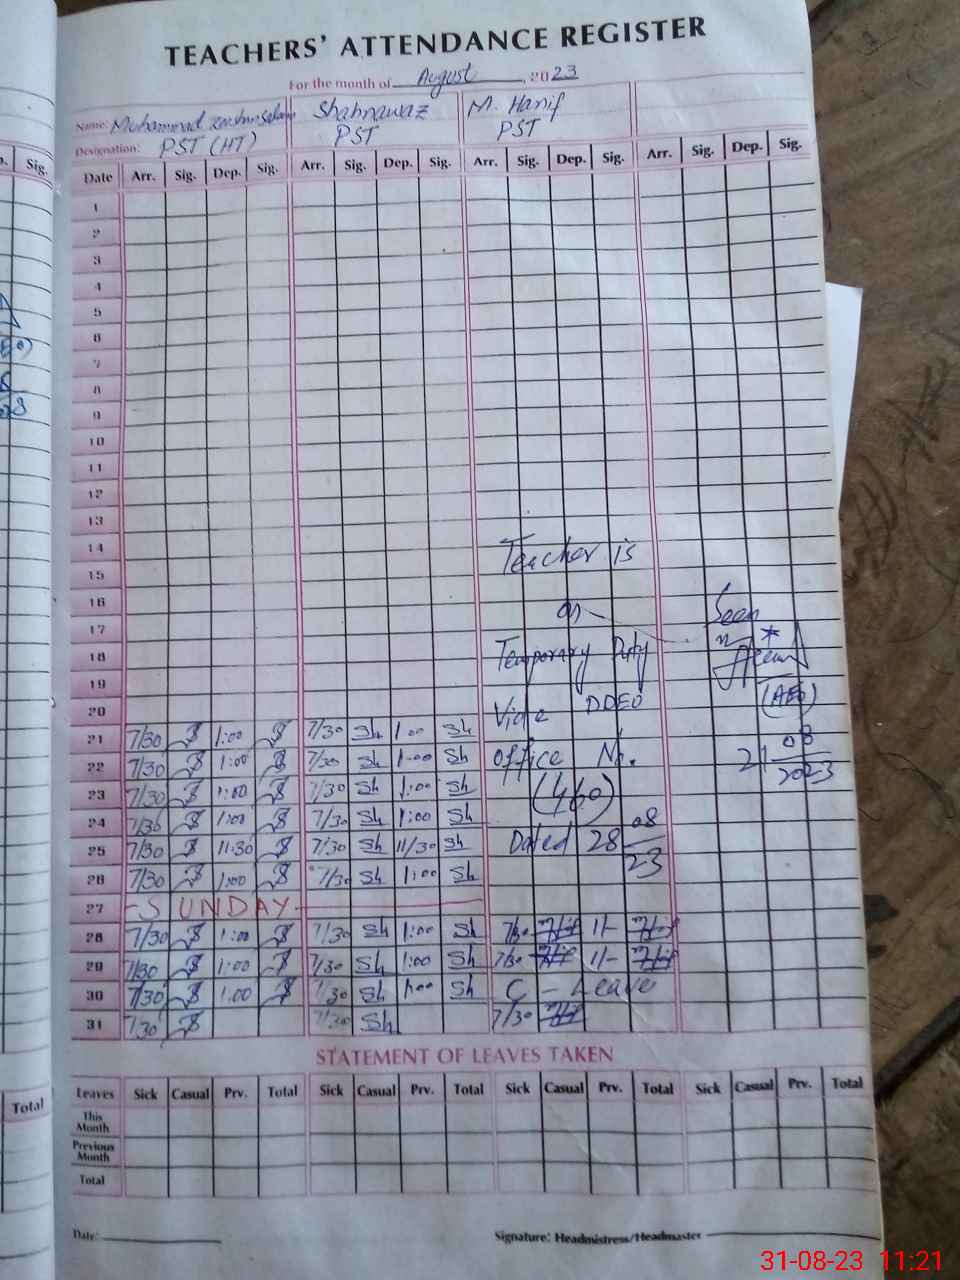 TEACHERS' ATTENDANCE REGISTER
For the month of August, 2023
Name: Muhammad Shahnawaz M. Hanif
Designation: PST (HT) PST PST
Date Arr. Sig. Dep. Sig. Arr. Sig. Dep. Sig. Arr. Sig. Dep. Sig. Arr. Sig. Dep. Sig.
1
2
3
4
5
6
7
8
9
10
11
12
13
14 Teacher is
15
16 on Seen
17
18 Temporary Duty
19
20 Vide DDEO (AEO)
21 7/30 1:00 7/30 Sh 1:00 Sh
22 7/30 1:00 7/30 Sh 1:00 Sh office No. 21 08/2023
23 7/30 1:00 7/30 Sh 1:00 Sh (460)
24 7/30 1:00 7/30 Sh 1:00 Sh
25 7/30 11:30 7/30 Sh 11/30 Sh Dated 28 08/23
26 7/30 1:00 7/30 Sh 1:00 Sh
27 SUNDAY
28 7/30 1:00 7/30 Sh 1:00 Sh 7/30 1/-
29 7/30 1:00 7/30 Sh 1:00 Sh 7/30 1/-
30 7/30 1:00 7/30 Sh 1:00 Sh C - Leave
31 7/30 7/30 Sh 7/30
STATEMENT OF LEAVES TAKEN
Leaves Sick Casual Prv. Total Sick Casual Prv. Total Sick Casual Prv. Total Sick Casual Prv. Total
This Month
Previous Month
Total
Date: Signature: Headmistress/Headmaster
Sig.
Total
31-08-23 11:21